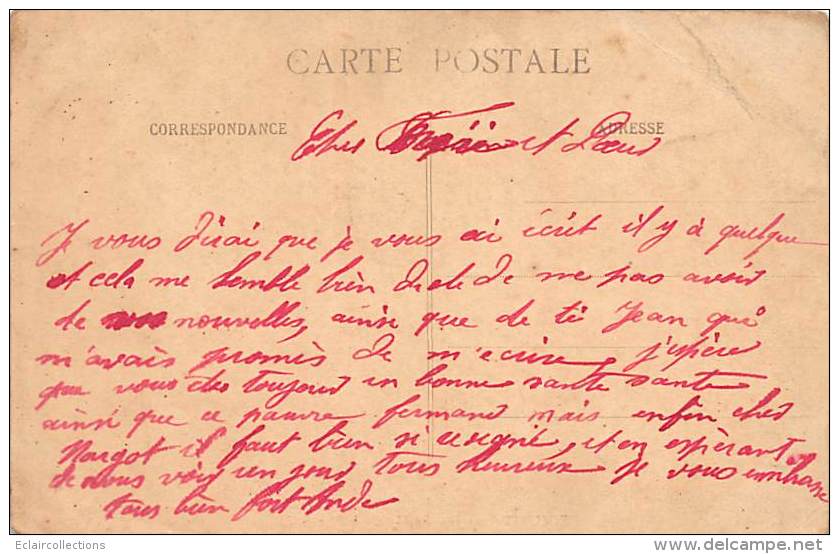 CARTE POSTALE
CORRESPONDANCE
ADRESSE
Cher Frère et Sœur
Je vous dirai que je vous ai écrit il y à quelque
et cela me semble bièn drole de ne pas avoir
de nouvelles, ainsi que de ti Jean qui
m'avais promis de m'ecrire, j'espère
que vous etes toujour en bonne sante sante
ainsi que ce pauvre fernand mais enfin cher
Margot il faut bien s'i resigné, et en espèrant
de nous voir un jour tous heureux je vous embrasse
tous bien fort
Eclaircollections
www.delcampe.net